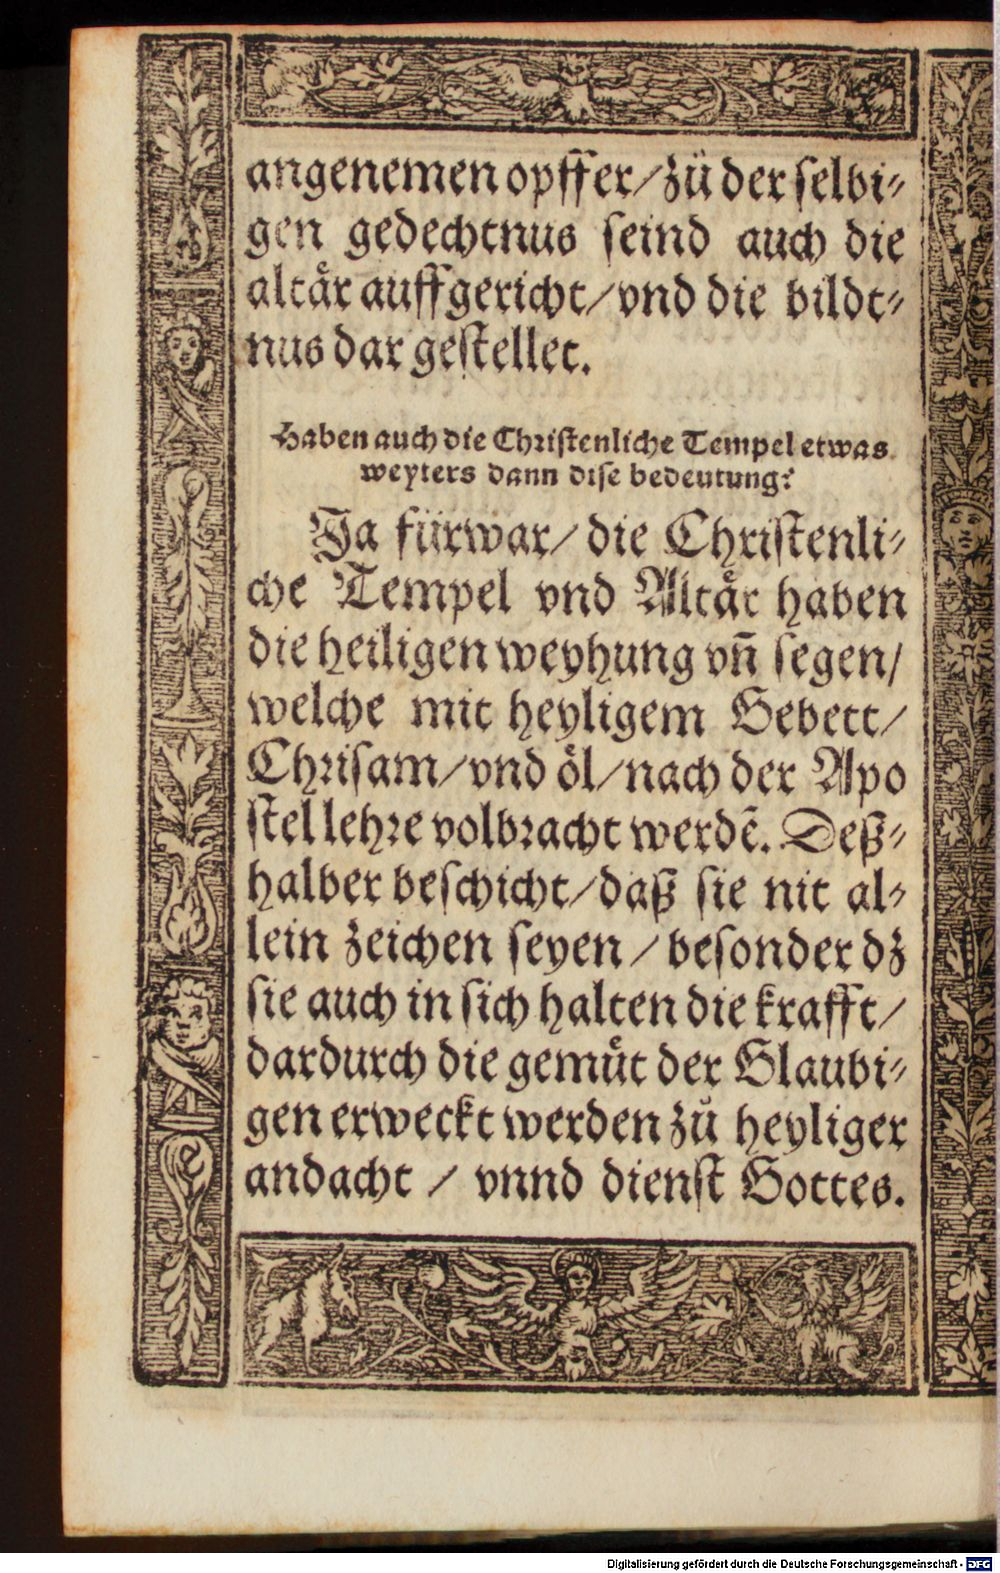 angenemen opffer/zů der selbi-
gen gedechtnus seind auch die
altår auffgericht/vnd die bildt-
nus dar gestellet.
Haben auch die Christenliche Tempel etwas
weyters dann dise bedeutung?
Ja fürwar/ die Christenli-
che Tempel vnd Altår haben
die heiligen weyhung vñ segen/
welche mit heyligem Gebett/
Chrisam/vnd öl/nach der Apo
stel lehre volbracht werdē. Deß-
halber beschicht/daß sie nit al-
lein zeichen seyen / besonder dz
sie auch in sich halten die krafft/
dardurch die gemüt der Glaubi-
gen erweckt werden zů heyliger
andacht / vnnd dienst Gottes.
Digitalisierung gefördert durch die Deutsche Forschungsgemeinschaft - DFG